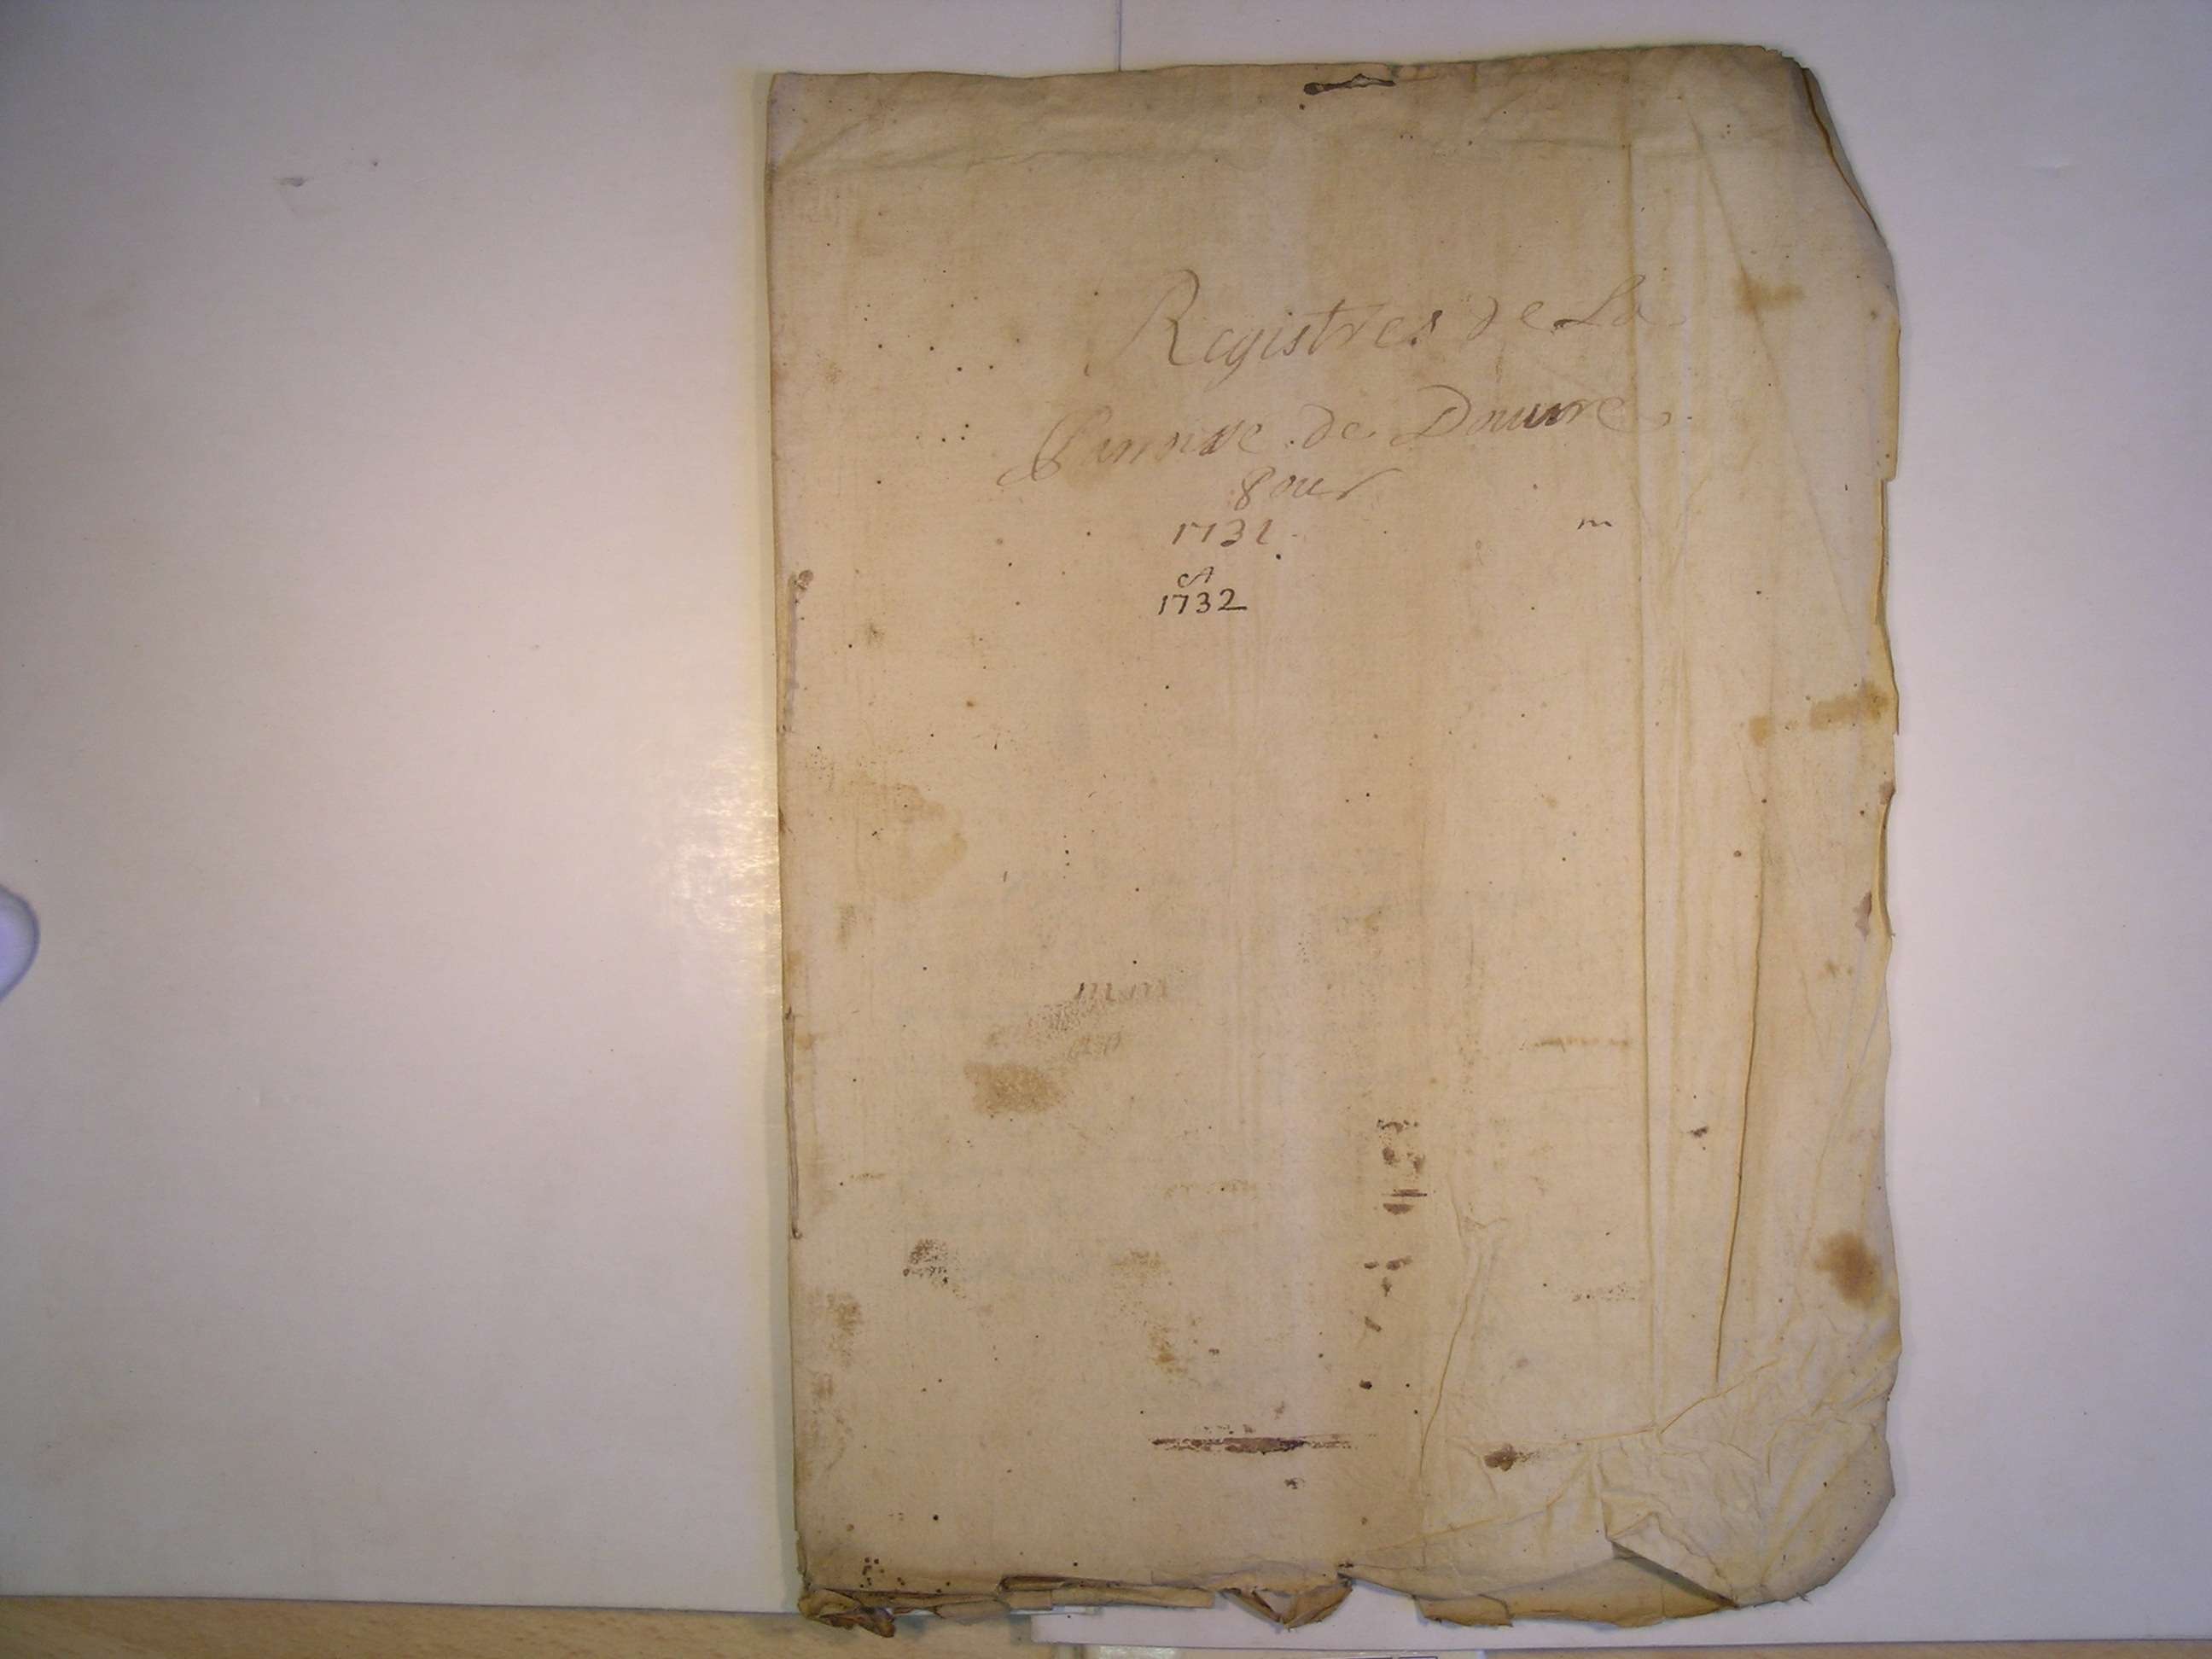 Registres de La
Parroisse de Douvre
Pour
1731
et
1732
m